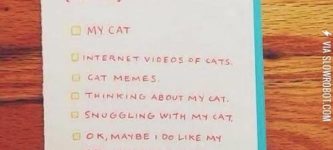 MY CAT
INTERNET VIDEOS OF CATS.
CAT MEMES.
THINKING ABOUT MY CAT.
SNUGGLING WITH MY CAT.
OK, MAYBE I DO LIKE MY
VIA SLOWROBOT.COM